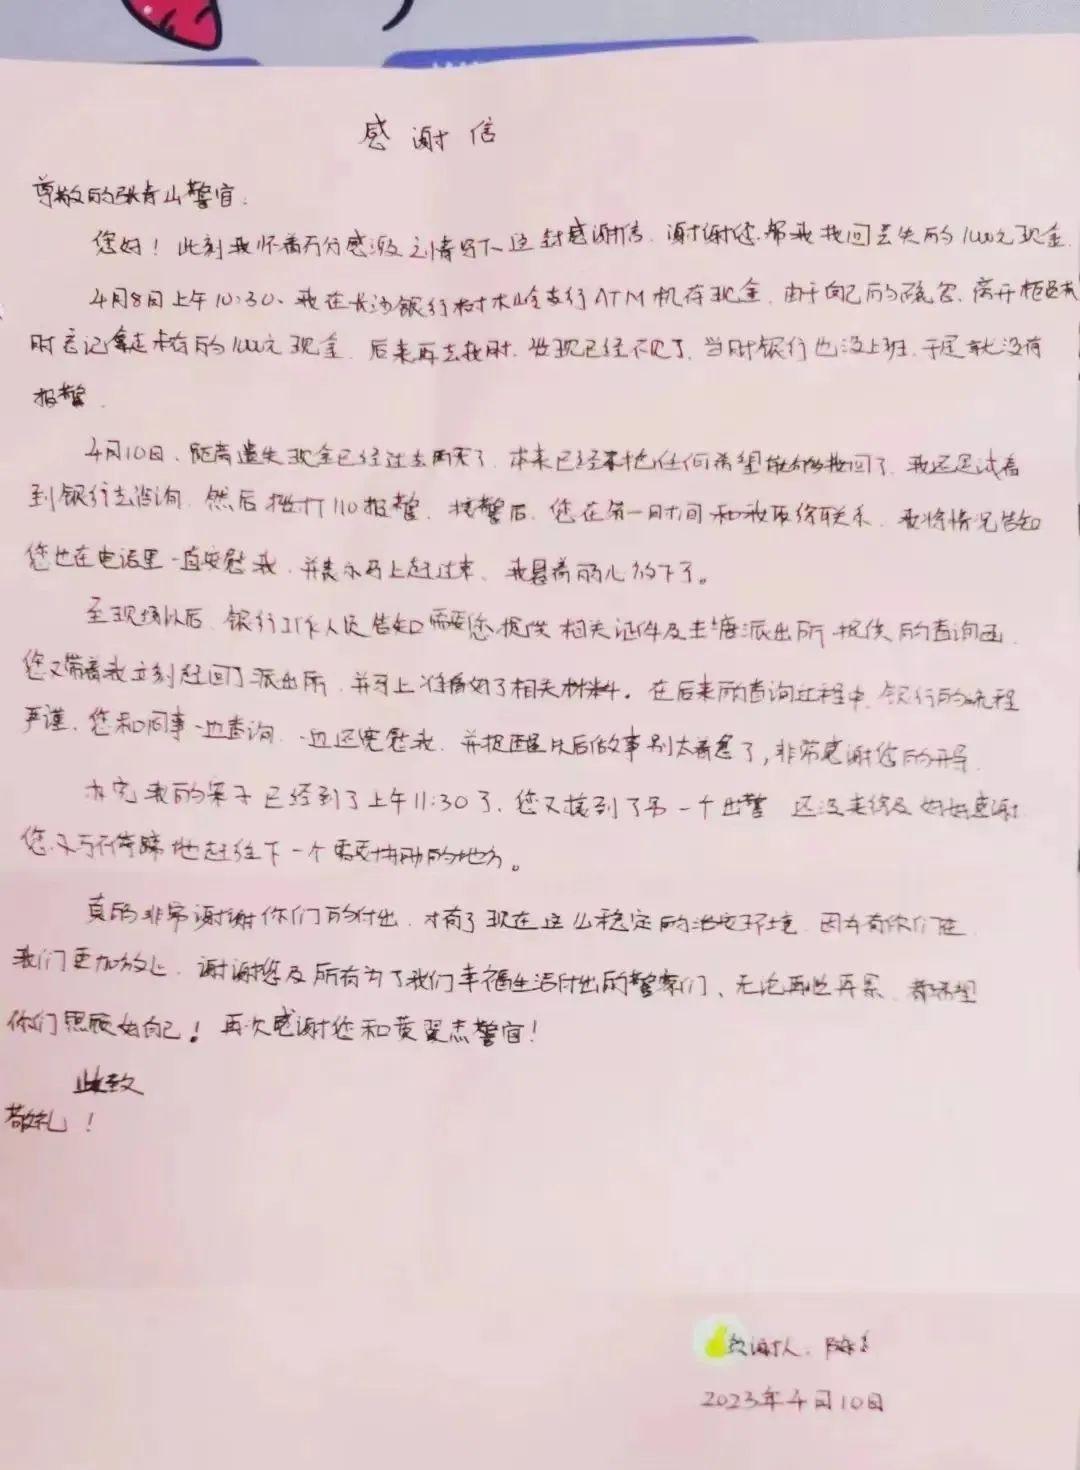 感谢信
尊敬的张青山警官:
您好！此刻我怀着万分感激之情写下这封感谢信，谢谢您帮我找回丢失的1000元现金.
4月8日上午10:30、我在长沙银行树木岭支行ATM机存现金，由于自己的疏忽，离开柜员机
时忘记拿走未存的1000元现金，后来再去找时，发现已经不见了，当时银行也没上班，于是就没有
报警.
4月10日、距离遗失现金已经过去两天了，本来已经不抱任何希望能够找回了，我还是试着
到银行去咨询，然后拨打110报警，接警后，您在第一时间和我取得联系，我将情况告知
您也在电话里一直安慰我，并表示马上赶过来，我悬着的心放下了。
至现场以后，银行工作人员告知需要您提供相关证件及圭塘派出所提供的查询函，
您又带着我立刻赶回了派出所，并马上准备好了相关材料。在后来的查询过程中，银行的流程
严谨，您和同事一边查询，一边还宽慰我，并提醒以后做事别太着急了,非常感谢您的开导.
办完我的案子已经到了上午11:30了，您又接到了另一个出警，还没来得及好好感谢
您又马不停蹄地赶往下一个需要协助的地方。
真的非常谢谢你们的付出，才有了现在这么稳定的治安环境，因为有你们在，
我们更加放心，谢谢您及所有为了我们幸福生活付出的警察们、无论再忙再累，都希望
你们照顾好自己！再次感谢您和黄翼志警官！
此致
敬礼！
致谢人：陈
2023年4月10日